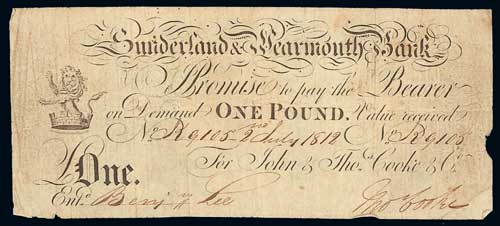 Sunderland & Wearmouth Bank
I Promise to pay the Bearer
on Demand ONE POUND. Value received
No. R 9105 2nd July 1812 No. R 9105
For John & Thos. Cooke & Co.
£One.
Entd. Benjn. Lee Jno Cooke